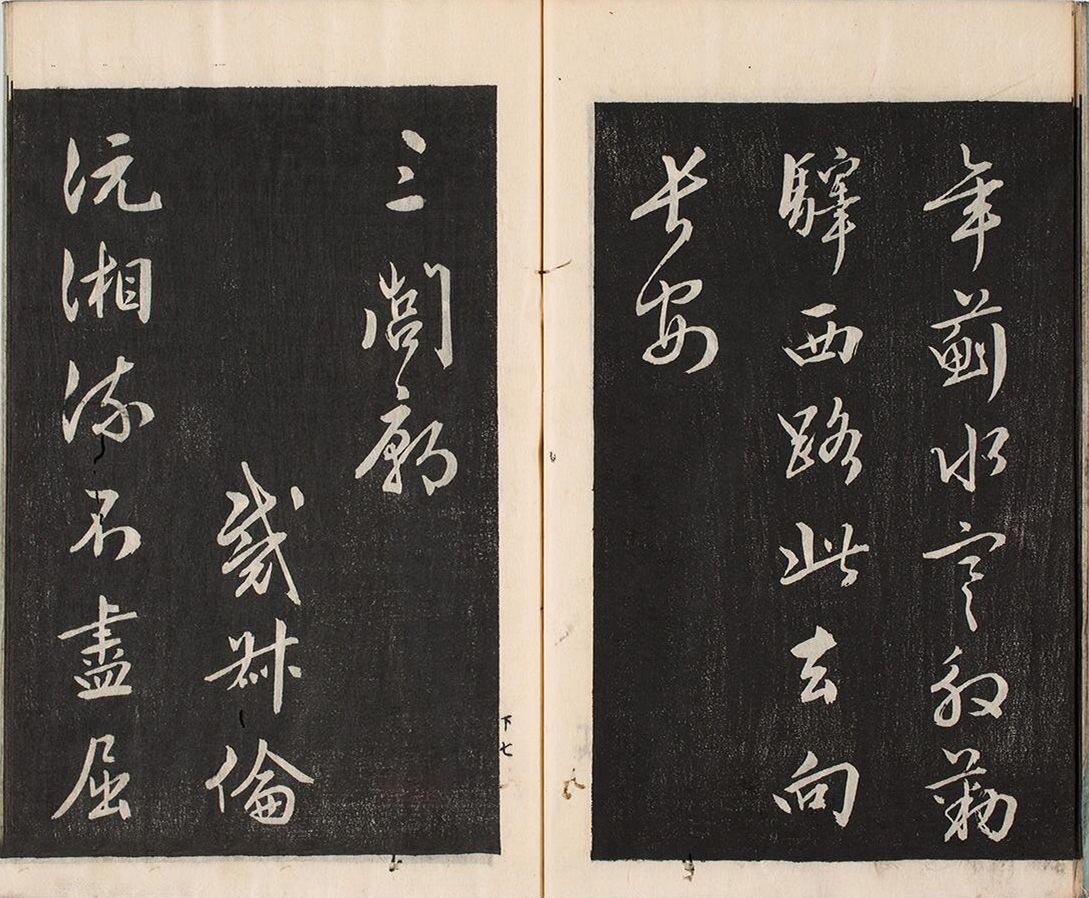 年薊水寒殷勤
驛西路此去向
長安
下七
三閭廟
戴叔倫
沅湘流不盡屈